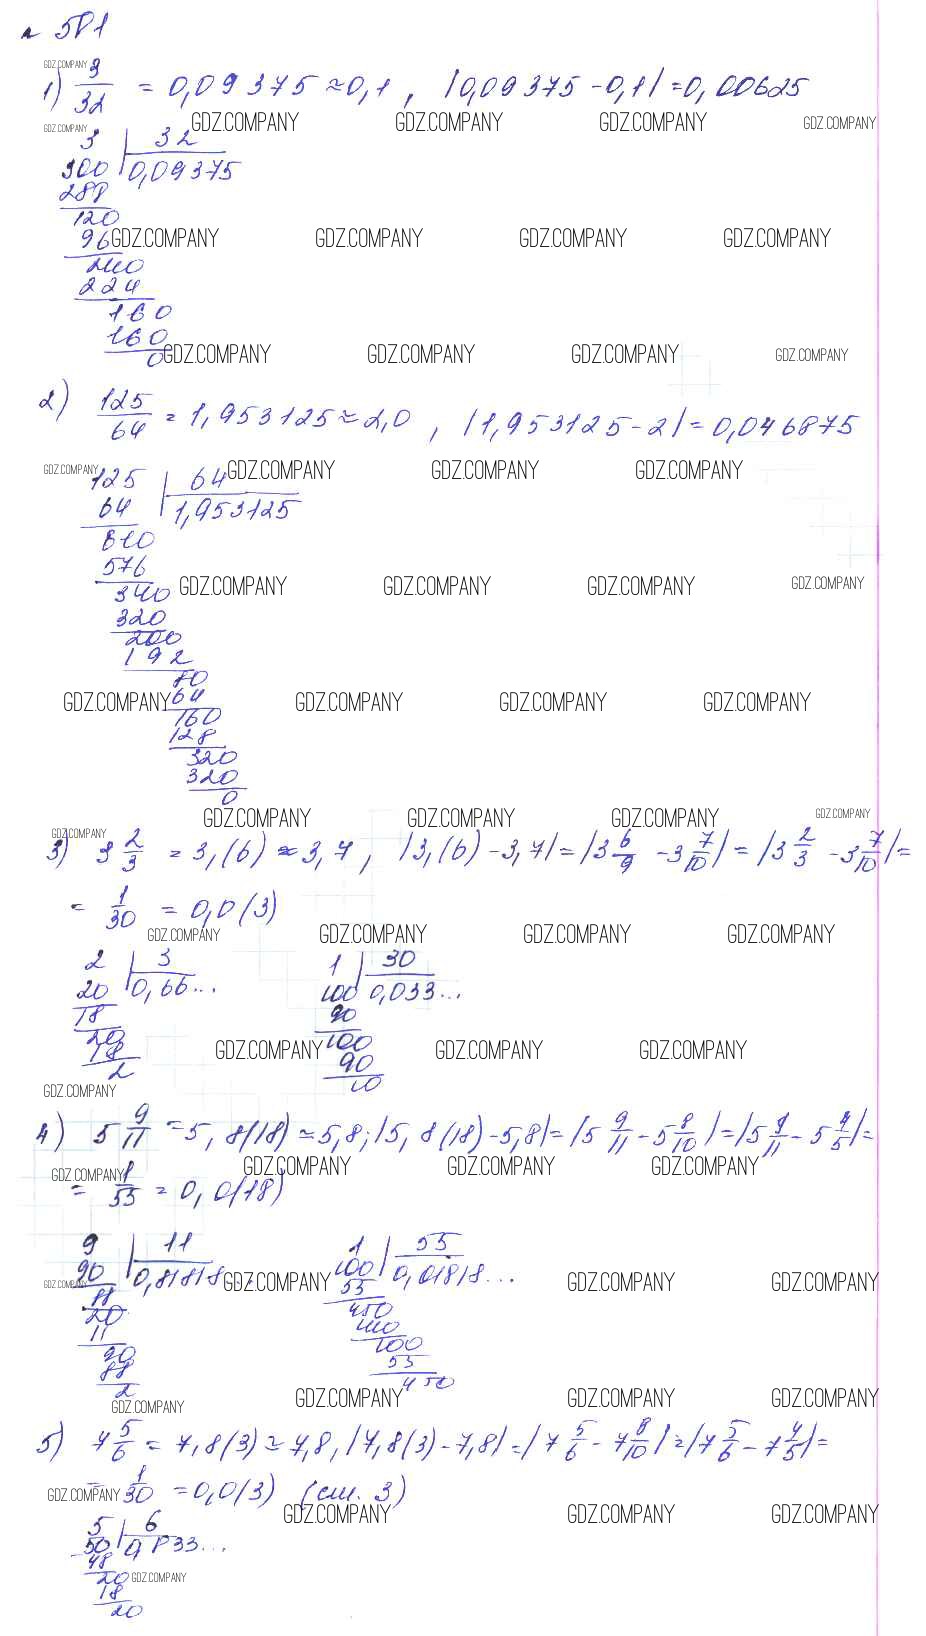 № 581
GDZ.COMPANY
1) 3/32 = 0,09375 ≈ 0,1 , |0,09375 - 0,1| = 0,00625
GDZ.COMPANY GDZ.COMPANY GDZ.COMPANY GDZ.COMPANY GDZ.COMPANY
3 | 32
300 | 0,09375
288
120
96 GDZ.COMPANY GDZ.COMPANY GDZ.COMPANY GDZ.COMPANY
240
224
160
160
0 GDZ.COMPANY GDZ.COMPANY GDZ.COMPANY GDZ.COMPANY
2) 125/64 = 1,953125 ≈ 2,0 , |1,953125 - 2| = 0,046875
GDZ.COMPANY GDZ.COMPANY GDZ.COMPANY GDZ.COMPANY
125 | 64
64 | 1,953125
610
576
340 GDZ.COMPANY GDZ.COMPANY GDZ.COMPANY GDZ.COMPANY
320
200
192
80
GDZ.COMPANY 64 GDZ.COMPANY GDZ.COMPANY GDZ.COMPANY
160
128
320
320
0
GDZ.COMPANY GDZ.COMPANY GDZ.COMPANY GDZ.COMPANY
GDZ.COMPANY
3) 3 2/3 = 3,(6) ≈ 3,7 , |3,(6) - 3,7| = |3 6/9 - 3 7/10| = |3 2/3 - 3 7/10| =
= 1/30 = 0,0(3)
GDZ.COMPANY GDZ.COMPANY GDZ.COMPANY GDZ.COMPANY
2 | 3 1 | 30
20 | 0,66... 100 | 0,033...
18 90
20 100
18 90 GDZ.COMPANY GDZ.COMPANY GDZ.COMPANY
2 10
GDZ.COMPANY
4) 5 9/11 = 5,8(18) ≈ 5,8; |5,8(18) - 5,8| = |5 9/11 - 5 8/10| = |5 9/11 - 5 4/5| =
GDZ.COMPANY GDZ.COMPANY GDZ.COMPANY GDZ.COMPANY
= 1/55 = 0,0(18)
9 | 11 1 | 55
90 | 0,81818 100 | 0,01818...
GDZ.COMPANY GDZ.COMPANY GDZ.COMPANY GDZ.COMPANY
88 55
20 450
11 440
90 100
88 55
2 450
GDZ.COMPANY GDZ.COMPANY GDZ.COMPANY GDZ.COMPANY
5) 7 5/6 = 7,8(3) ≈ 7,8, |7,8(3) - 7,8| = |7 5/6 - 7 8/10| = |7 5/6 - 7 4/5| =
= 1/30 = 0,0(3) (см. 3)
GDZ.COMPANY GDZ.COMPANY GDZ.COMPANY GDZ.COMPANY
5 | 6
50 | 0,833...
48
20 GDZ.COMPANY
18
20